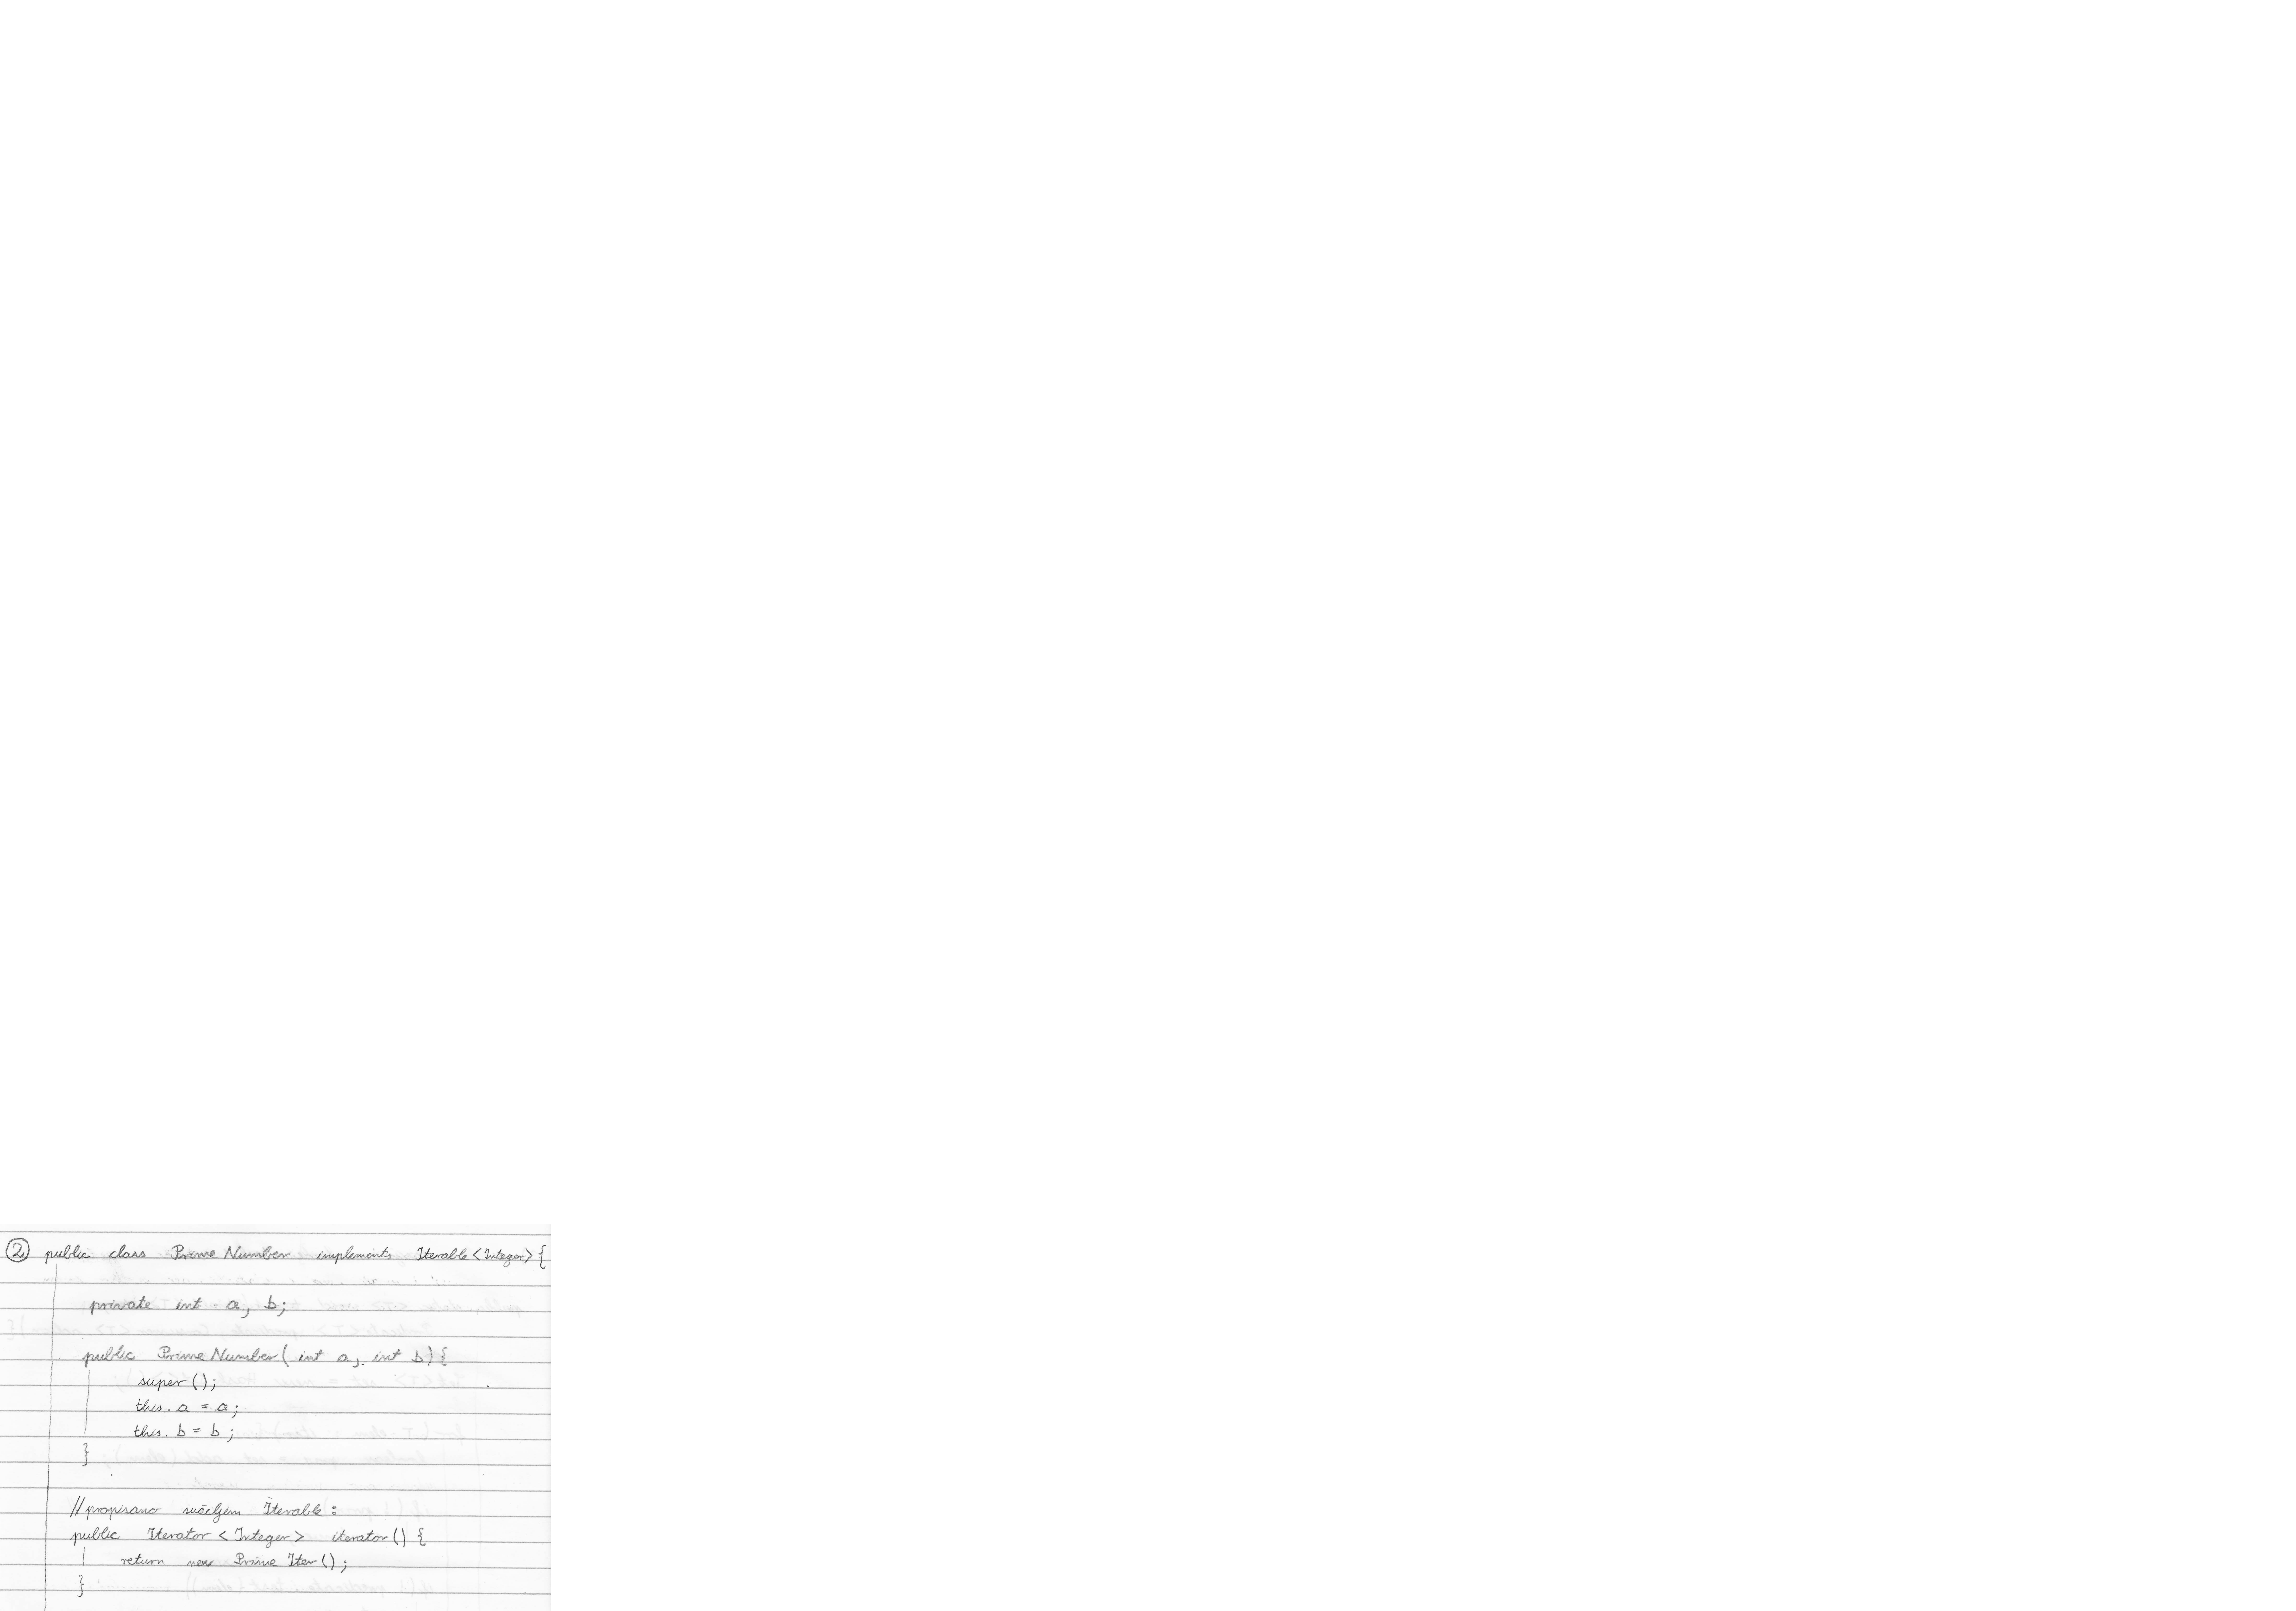 ② public class PrimeNumber implements Iterable<Integer>{
private int a, b;
public PrimeNumber(int a, int b){
super();
this.a = a;
this.b = b;
}
//propisano sučeljem Iterable:
public Iterator<Integer> iterator() {
return new PrimeIter();
}